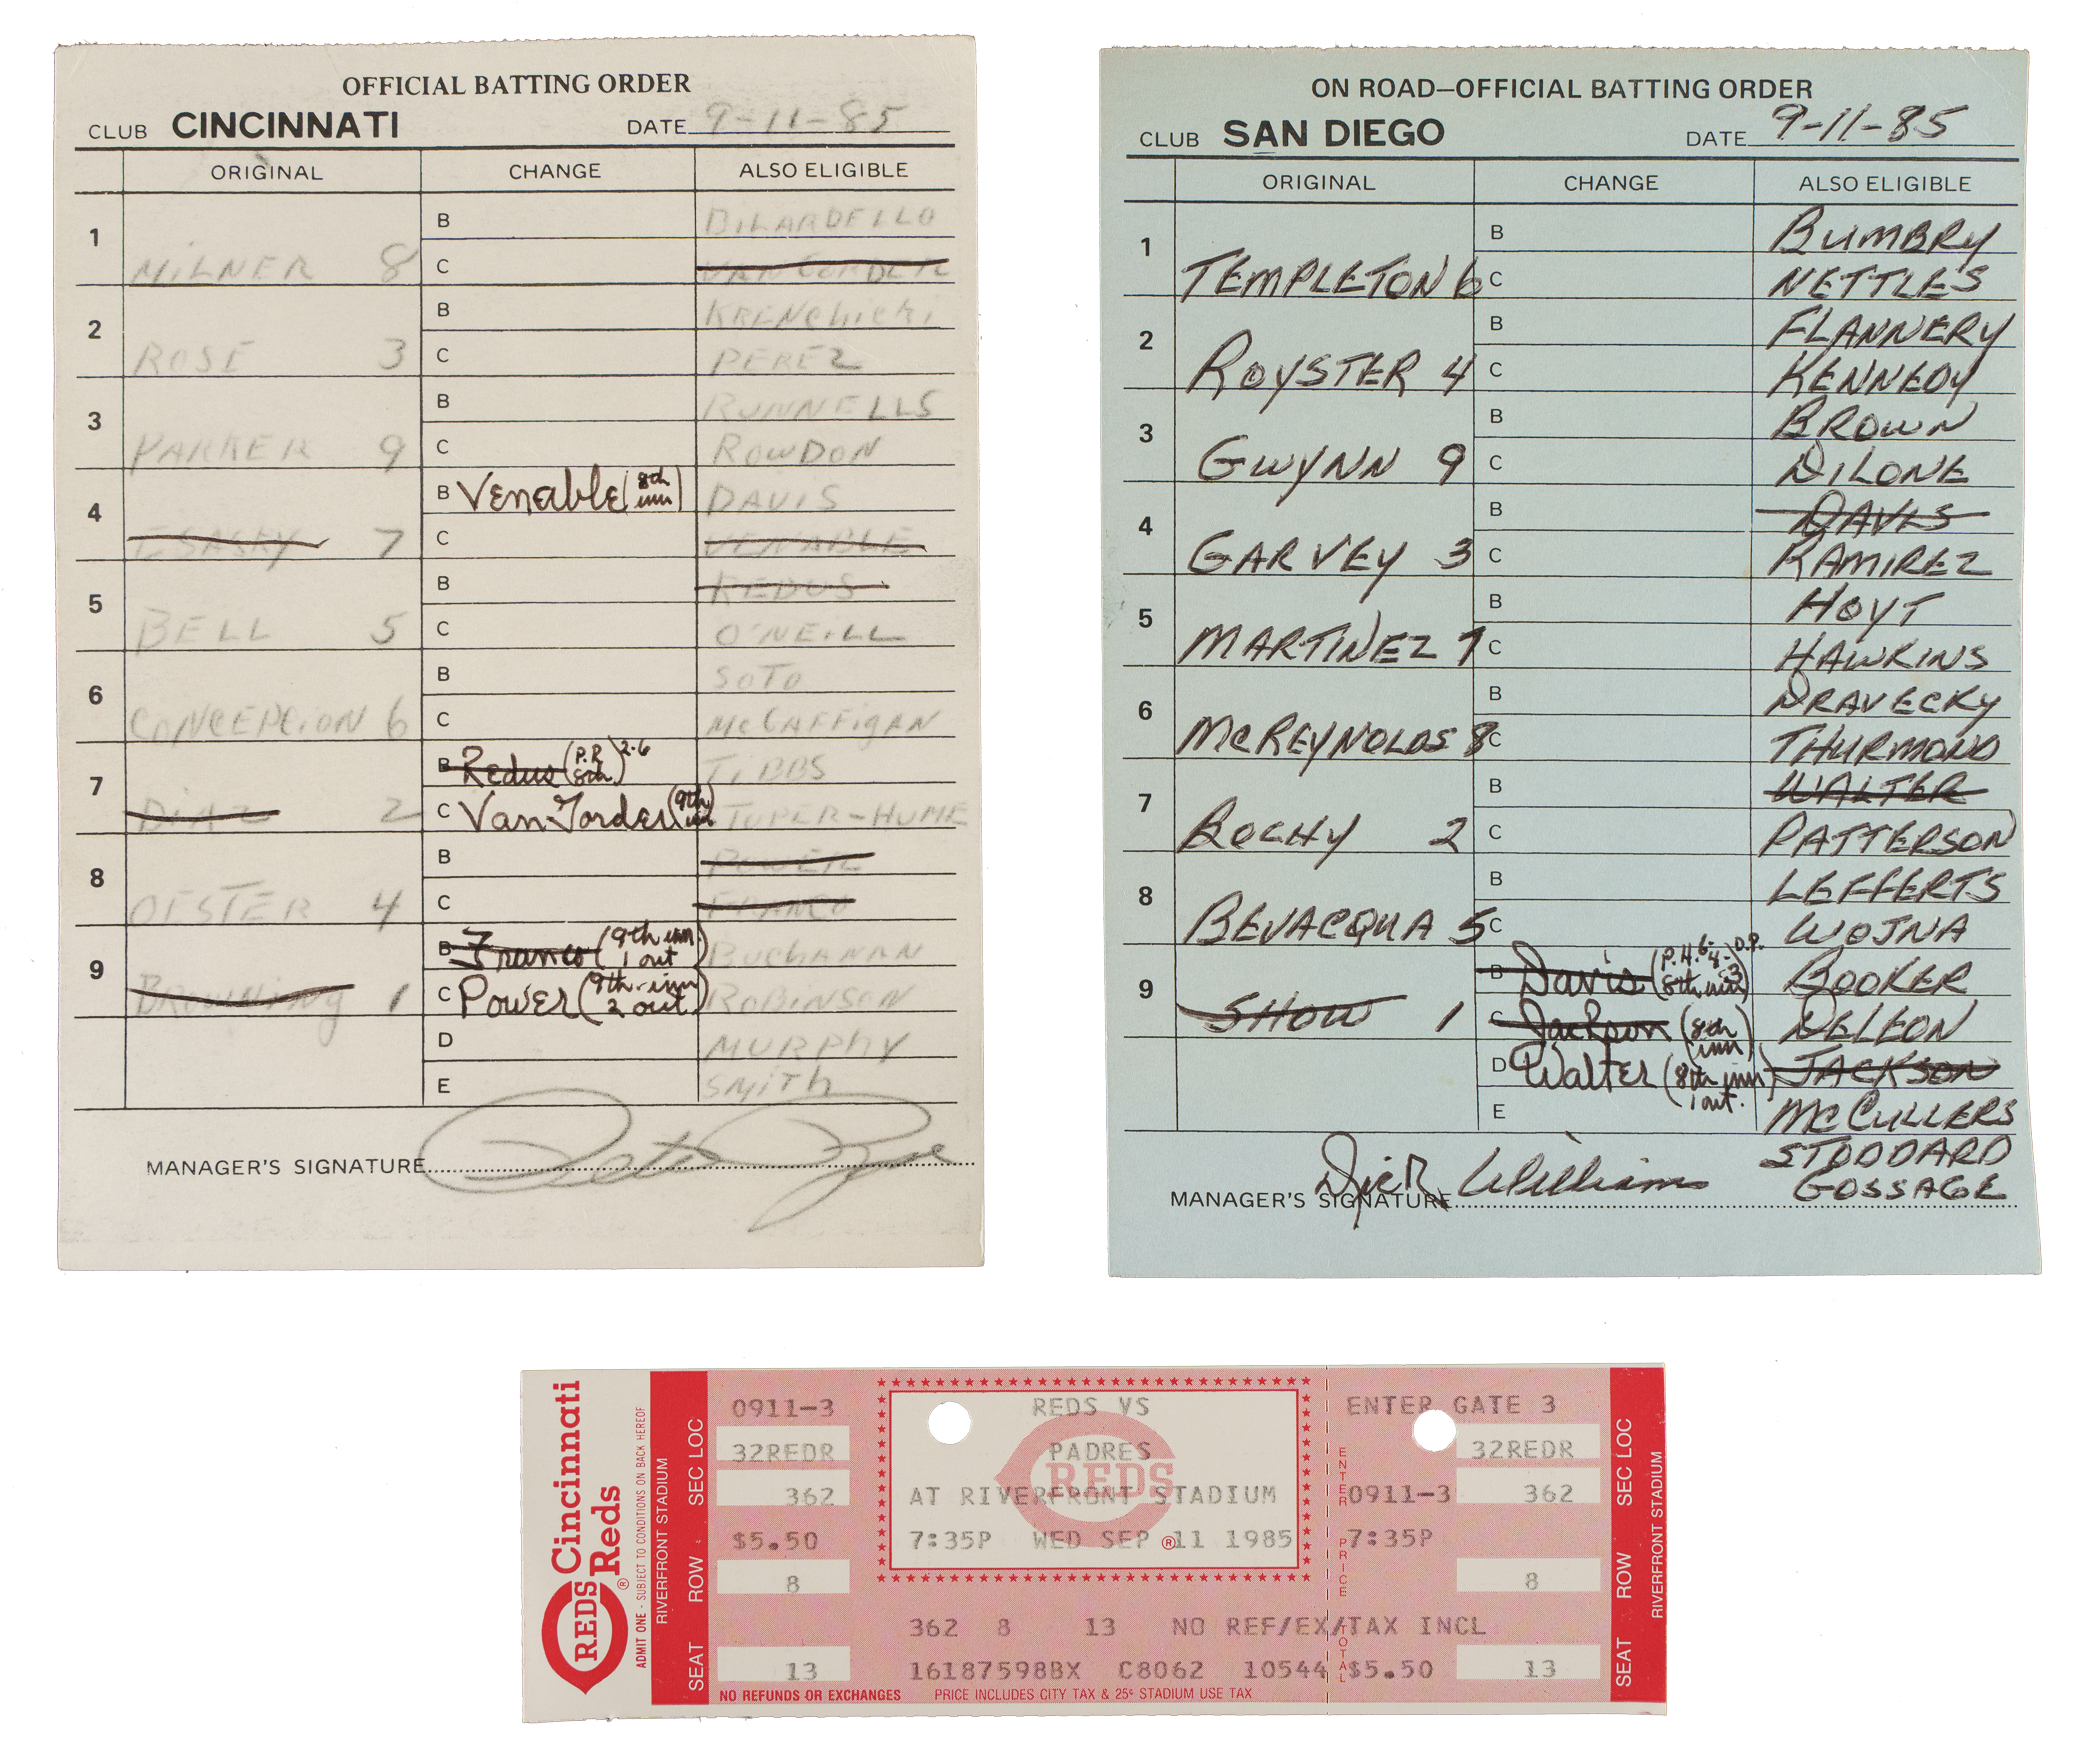 OFFICIAL BATTING ORDER
CLUB CINCINNATI DATE 9-11-85
ORIGINAL CHANGE ALSO ELIGIBLE
1 MILNER 8 B BILARDELLO
C VAN GORDER
2 ROSE 3 B KRENCHICKI
C PEREZ
3 PARKER 9 B RUNNELLS
C ROWDON
4 ESASKY 7 B Venable (8th inn) DAVIS
C VENABLE
5 BELL 5 B REDUS
C O'NEILL
6 CONCEPCION 6 B SOTO
C McGAFFIGAN
7 DIAZ 2 B Redus (P.R. 8th) 2-6 TIBBS
C Van Gorder (9th inn) TUPER-HUME
8 OESTER 4 B POWER
C FRANCO
9 BROWNING 1 B Franco (9th inn 1 out) BUCHANAN
C Power (9th-inn 2 out) ROBINSON
D MURPHY
E SMITH
MANAGER'S SIGNATURE Pete Rose
ON ROAD—OFFICIAL BATTING ORDER
CLUB SAN DIEGO DATE 9-11-85
ORIGINAL CHANGE ALSO ELIGIBLE
1 TEMPLETON 6 B BUMBRY
C NETTLES
2 ROYSTER 4 B FLANNERY
C KENNEDY
3 GWYNN 9 B BROWN
C DILONE
4 GARVEY 3 B DAVIS
C RAMIREZ
5 MARTINEZ 7 B HOYT
C HAWKINS
6 McREYNOLDS 8 B DRAVECKY
C THURMOND
7 BOCHY 2 B WALTER
C PATTERSON
8 BEVACQUA 5 B LEFFERTS
C WOJNA
9 SHOW 1 B Davis (P.H. 6-4-3 D.P. 8th inn) BOOKER
C Jackson (8th inn) DELEON
D Walter (8th inn 1 out.) JACKSON
E McCULLERS
STODDARD
GOSSAGE
MANAGER'S SIGNATURE Dick Williams
Cincinnati Reds
REDS ®
ADMIT ONE - SUBJECT TO CONDITIONS ON BACK HEREOF
RIVERFRONT STADIUM
SEAT ROW SEC LOC
0911-3
32REDR
362
$5.50
8
13
NO REFUNDS OR EXCHANGES
REDS VS
PADRES
REDS
AT RIVERFRONT STADIUM
7:35P WED SEP ® 11 1985
362 8 13 NO REF/EX/TAX INCL
16187598BX C8062 10544 $5.50
PRICE INCLUDES CITY TAX & 25¢ STADIUM USE TAX
ENTER PRICE TOTAL
ENTER GATE 3
32REDR
0911-3 362
7:35P
8
13
SEAT ROW SEC LOC
RIVERFRONT STADIUM